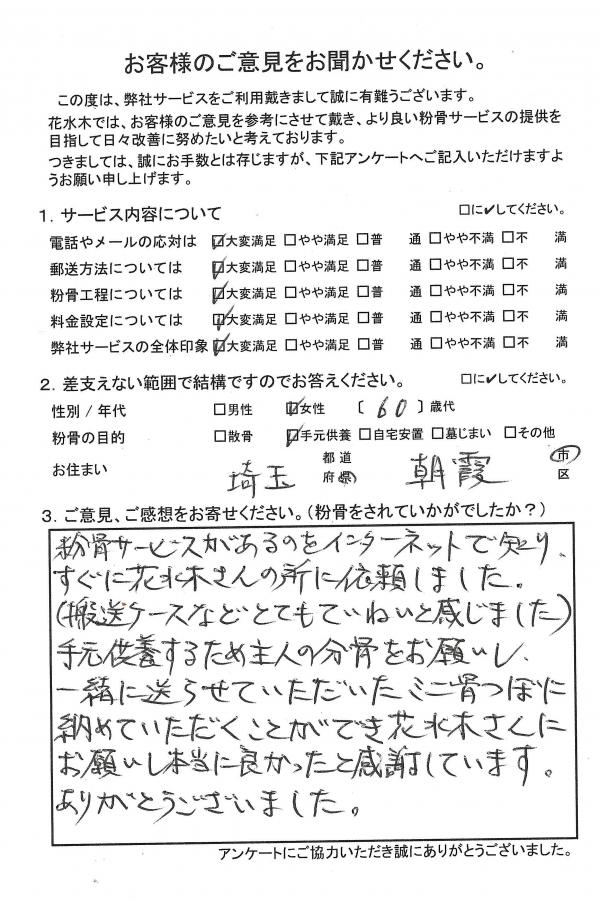 お客様のご意見をお聞かせください。
この度は、弊社サービスをご利用戴きまして誠に有難うございます。
花水木では、お客様のご意見を参考にさせて戴き、より良い粉骨サービスの提供を
目指して日々改善に努めたいと考えております。
つきましては、誠にお手数とは存じますが、下記アンケートへご記入いただけますよ
うお願い申し上げます。
1. サービス内容について □に✔してください。
電話やメールの応対は ☑大変満足 □やや満足 □普 通 □やや不満 □不 満
郵送方法については ☑大変満足 □やや満足 □普 通 □やや不満 □不 満
粉骨工程については ☑大変満足 □やや満足 □普 通 □やや不満 □不 満
料金設定については ☑大変満足 □やや満足 □普 通 □やや不満 □不 満
弊社サービスの全体印象 ☑大変満足 □やや満足 □普 通 □やや不満 □不 満
2. 差支えない範囲で結構ですのでお答えください。 □に✔してください。
性別 / 年代 □男性 ☑女性 〔 60 〕歳代
粉骨の目的 □散骨 ☑手元供養 □自宅安置 □墓じまい □その他
お住まい 埼玉 都道府県 朝霞 市区
3. ご意見、ご感想をお寄せください。(粉骨をされていかがでしたか?)
粉骨サービスがあるのをインターネットで知り、
すぐに花水木さんの所に依頼しました。
(搬送ケースなどとてもていねいと感じました)
手元供養するため主人の分骨をお願いし、
一緒に送らせていただいたミニ骨つぼに
納めていただくことができ花水木さんに
お願いし本当に良かったと感謝しています。
ありがとうございました。
アンケートにご協力いただき誠にありがとうございました。